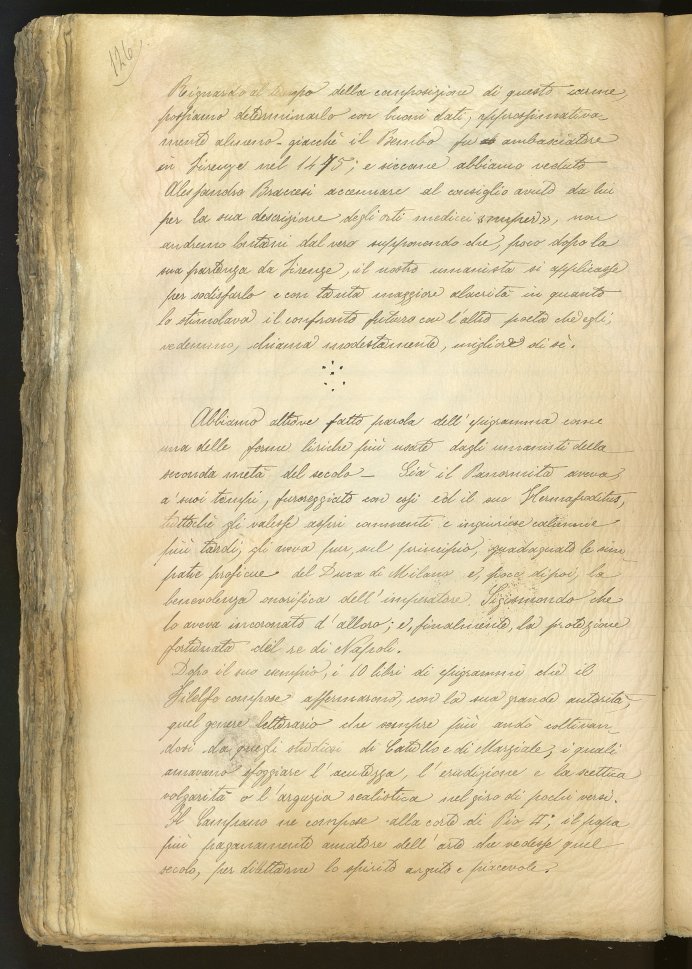 126
Riguardo al tempo della composizione di questo carme,
possiamo determinarlo con buoni dati, approssimativa-
mente almeno - giacchè il Bembo fu ambasciatore
in Firenze nel 1475; e siccome abbiamo veduto
Alessandro Braccesi accennare al consiglio avuto da lui
per la sua descrizione degli orti medicei «nuper», non
andremo lontani dal vero supponendo che, poco dopo la
sua partenza da Firenze, il nostro umanista si applicasse
per sodisfarlo e con tanta maggiore alacrità in quanto
lo stimolava il confronto futuro con l'altro poeta che egli,
vedemmo, chiama modestamente, migliore di sè.
Abbiamo altrove fatto parola dell'epigramma come
una delle forme liriche più usate dagli umanisti della
seconda metà del secolo - Già il Panormita aveva,
a' suoi tempi, furoreggiato con essi ed il suo Hermafroditus,
tuttochè gli valesse aspri commenti e ingiuriose calunnie
più tardi, gli aveva pur, sul principio, guadagnato le sim-
patie proficue del Duca di Milano e, poco di poi, la
benevolenza onorifica dell'imperatore Sigismondo che
lo aveva incoronato d'alloro; e, finalmente, la protezione
fortunata del re di Napoli.
Dopo il suo esempio, i 10 libri di epigrammi che il
Filelfo compose affermarono, con la sua grande autorità
quel genere letterario che sempre più andò coltivan-
dosi da quegli studiosi di Catullo e di Marziale, i quali
amavano sfoggiare l'acutezza, l'erudizione e la scettica
volgarità o l'arguzia realistica nel giro di pochi versi.
Il Campano ne compose alla corte di Pio 4°, il papa
più paganamente amatore dell'arte che vedesse quel
secolo, per dilettarne lo spirito arguto e piacevole.